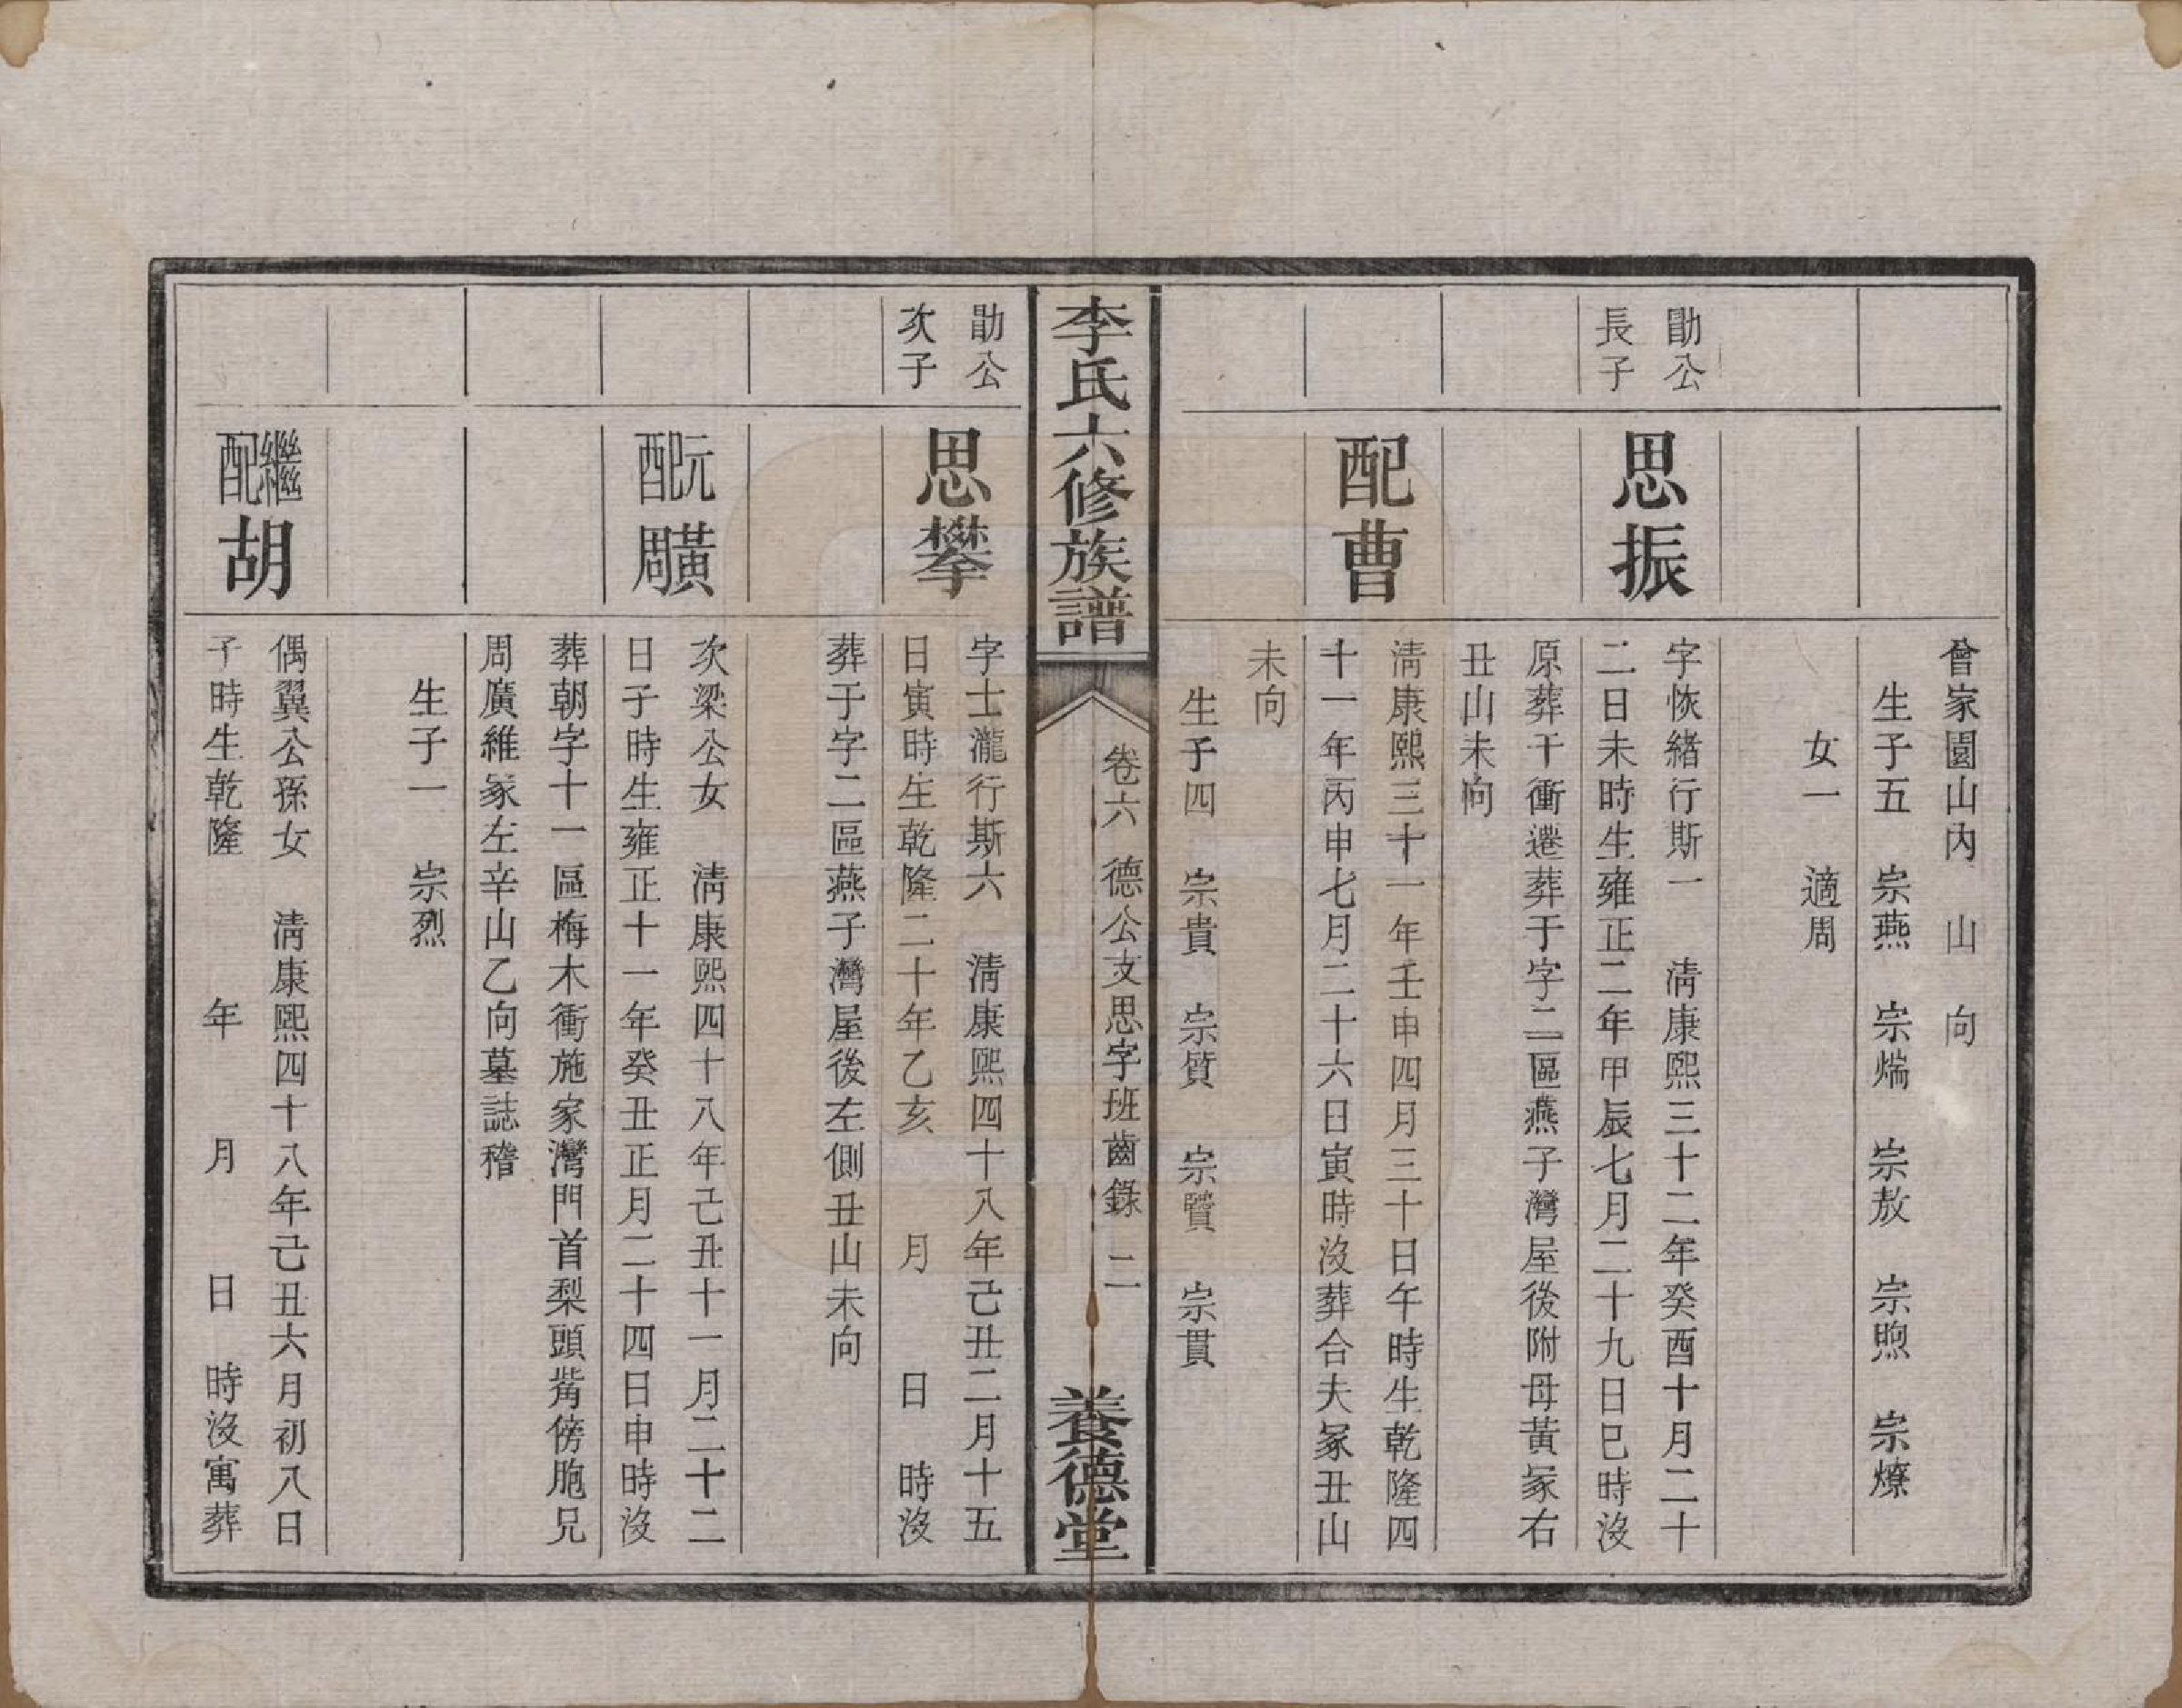 會家園山內　山　向
生子五　宗燕　宗煓　宗敖　宗煦　宗燎
女一　適周
勖公
長子
思振
字恢緒行斯一　清康熙三十二年癸酉十月二十
二日未時生雍正二年甲辰七月二十九日巳時沒
原葬干衝遷葬于字二區燕子灣屋後附母黃冡右
丑山未向
配曹
清康熙三十一年壬申四月三十日午時生乾隆四
十一年丙申七月二十六日寅時沒葬合夫冡丑山
未向
生子四　宗貴　宗質　宗贒　宗貫
李氏六修族譜
卷六　德公支思字班齒錄　二
養德堂
勖公
次子
思攀
字士瀧行斯六　清康熙四十八年己丑二月十五
日寅時生乾隆二十年乙亥　月　日　時沒
葬于字二區燕子灣屋後左側丑山未向
元配
黃周
次梁公女　清康熙四十八年己丑十一月二十二
日子時生雍正十一年癸丑正月二十四日申時沒
葬朝字十一區梅木衝施家灣門首梨頭觜傍胞兄
周廣維冡左辛山乙向墓誌稽
生子一　宗烈
繼配
胡
偶翼公孫女　清康熙四十八年己丑六月初八日
子時生乾隆　年　月　日　時沒寓葬